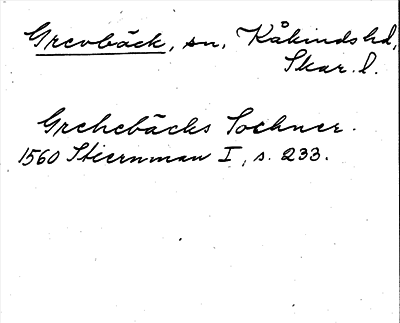 Grevbäck, sn, Kåkinds hd,
Skar. l.
Grehebäcks Sochner.
1560 Stiernman I, s. 233.